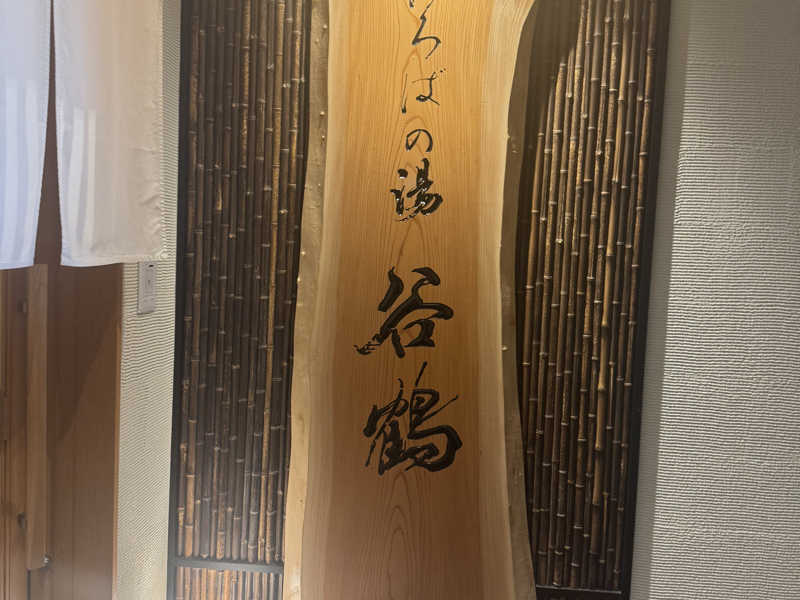 ろばの湯
谷鶴